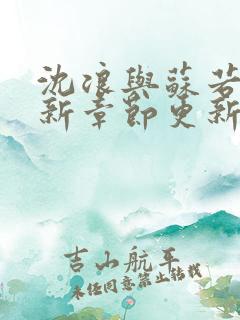 沈浪與蘇若
新章節更新
吉山航平
未经同意禁止转载